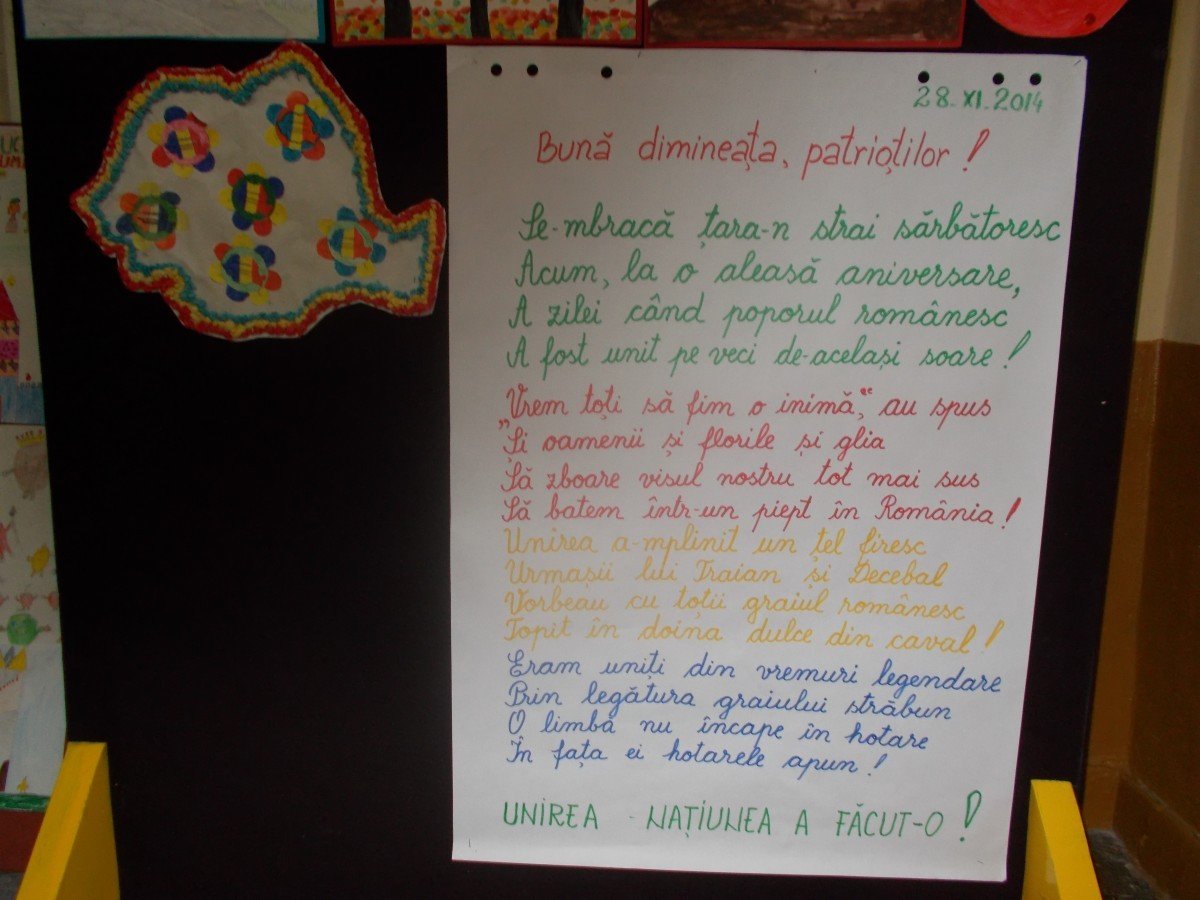 28.XI.2014
Bună dimineața, patrioților!
Se-mbracă țara-n strai sărbătoresc
Acum, la o aleasă aniversare,
A zilei când poporul românesc
A fost unit pe veci de-același soare!
„Vrem toți să fim o inimă,“ au spus
„Și oamenii și florile și glia
Să zboare visul nostru tot mai sus
Să batem într-un piept în România!
Unirea a-mplinit un țel firesc
Urmașii lui Traian și Decebal
Vorbeau cu toții graiul românesc
Topit în doina dulce din caval!
Eram uniți din vremuri legendare
Prin legătura graiului străbun
O limbă nu încape în hotare
În fața ei hotarele apun!
UNIREA - NAȚIUNEA A FĂCUT-O!